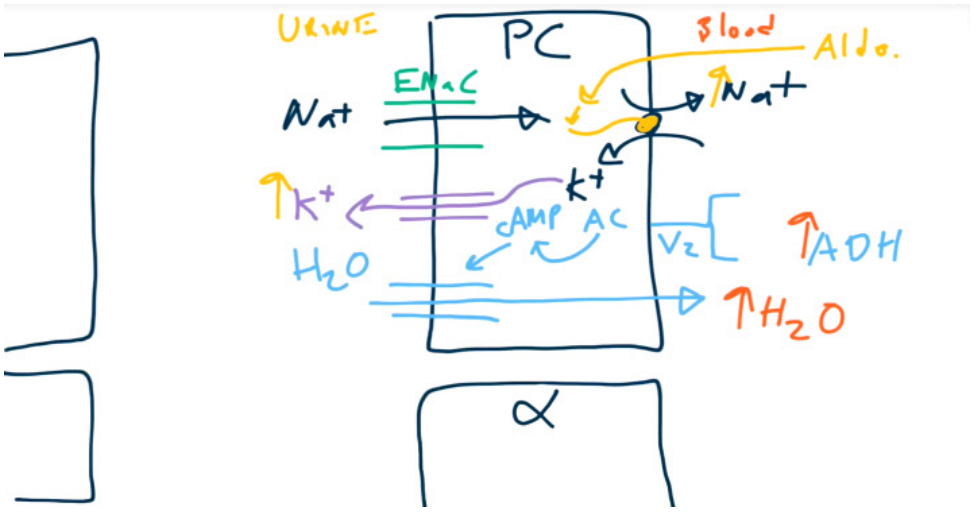 URINE
PC
Blood
Aldo.
ENaC
Na+
Na+
K+
K+
cAMP AC
H2O
V2
ADH
H2O
α